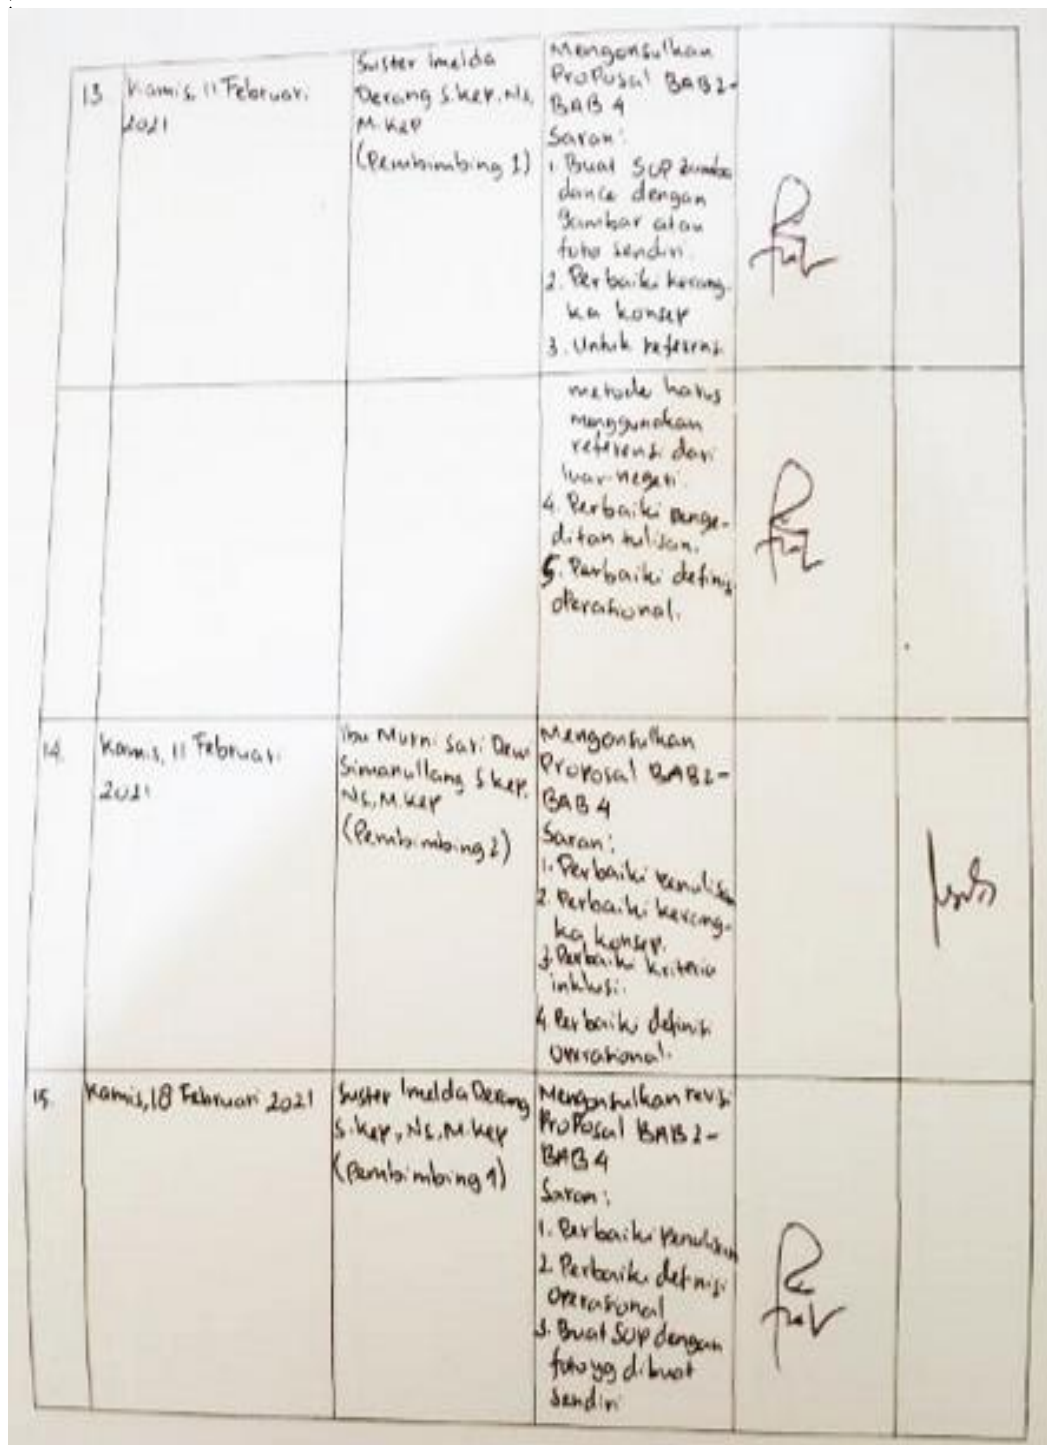 13 Kamis, 11 Februari
2021
Suster Imelda
Derang S.Kep.Ns,
M.Kep
(Pembimbing 1)
Mengonsulkan
Proposal BAB 2-
BAB 4
Saran:
1. Buat SOP zumba
dance dengan
gambar atau
foto sendiri.
2. Perbaiki kerang-
ka konsep
3. Untuk referensi
metode harus
menggunakan
referensi dari
luar negeri.
4. Perbaiki penge-
ditan tulisan.
5. Perbaiki definisi
operasional.
14. Kamis, 11 Februari
2021
Ibu Murni Sari Dewi
Simanullang S.Kep.
Ns, M.Kep
(Pembimbing 2)
Mengonsulkan
Proposal BAB 2-
BAB 4
Saran:
1. Perbaiki penulisan
2. Perbaiki kerang-
ka konsep.
3. Perbaiki kriteria
inklusi.
4. Perbaiki definisi
operasional.
15. Kamis, 18 Februari 2021
Suster Imelda Derang
S.Kep, Ns, M.Kep
(Pembimbing 1)
Mengonsulkan revisi
Proposal BAB 2-
BAB 4
Saran:
1. Perbaiki penulisan
2. Perbaiki definisi
operasional
3. Buat SOP dengan
foto yg dibuat
sendiri